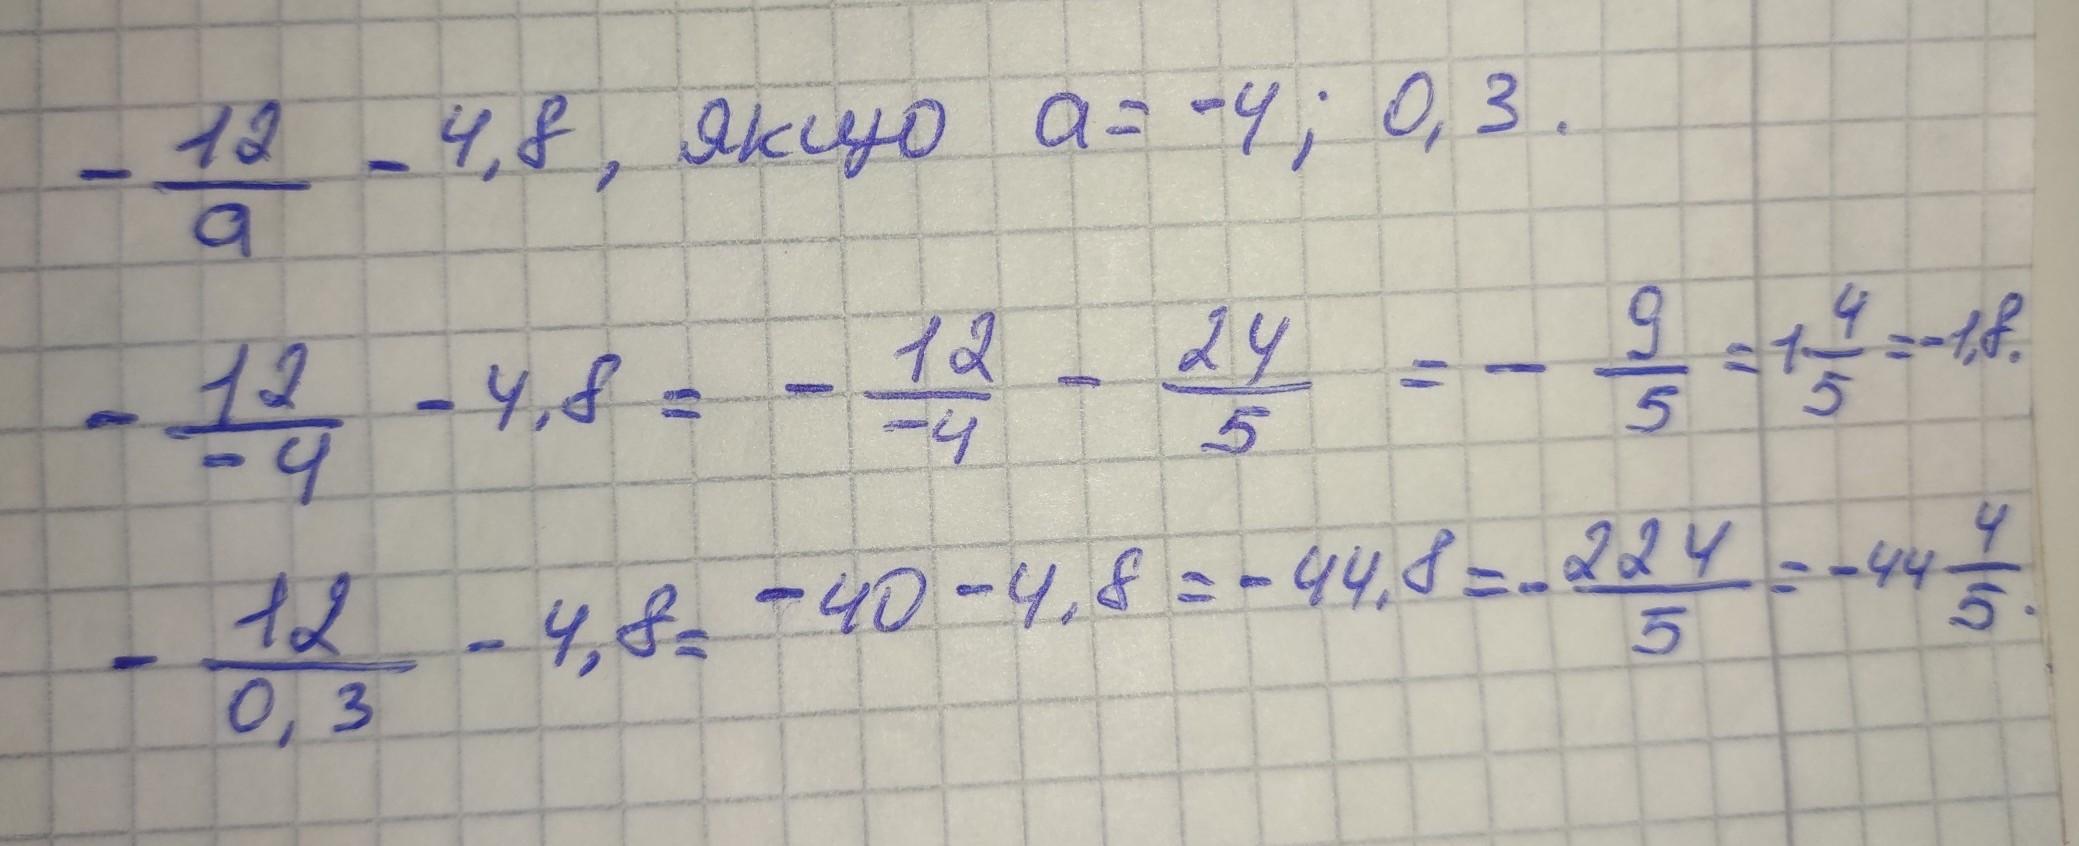 - 12/a - 4,8, якщо a = -4; 0,3.
- 12/-4 - 4,8 = - 12/-4 - 24/5 = - 9/5 = 1 4/5 = -1,8.
- 12/0,3 - 4,8 = -40 - 4,8 = -44,8 = - 224/5 = -44 4/5.